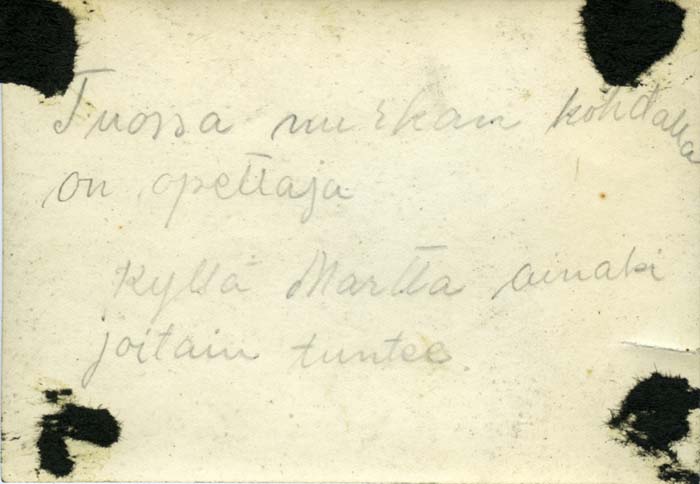 Tuossa nurkan kohdalla
on opettaja
Kyllä Martta ainaki
joitain tuntee.